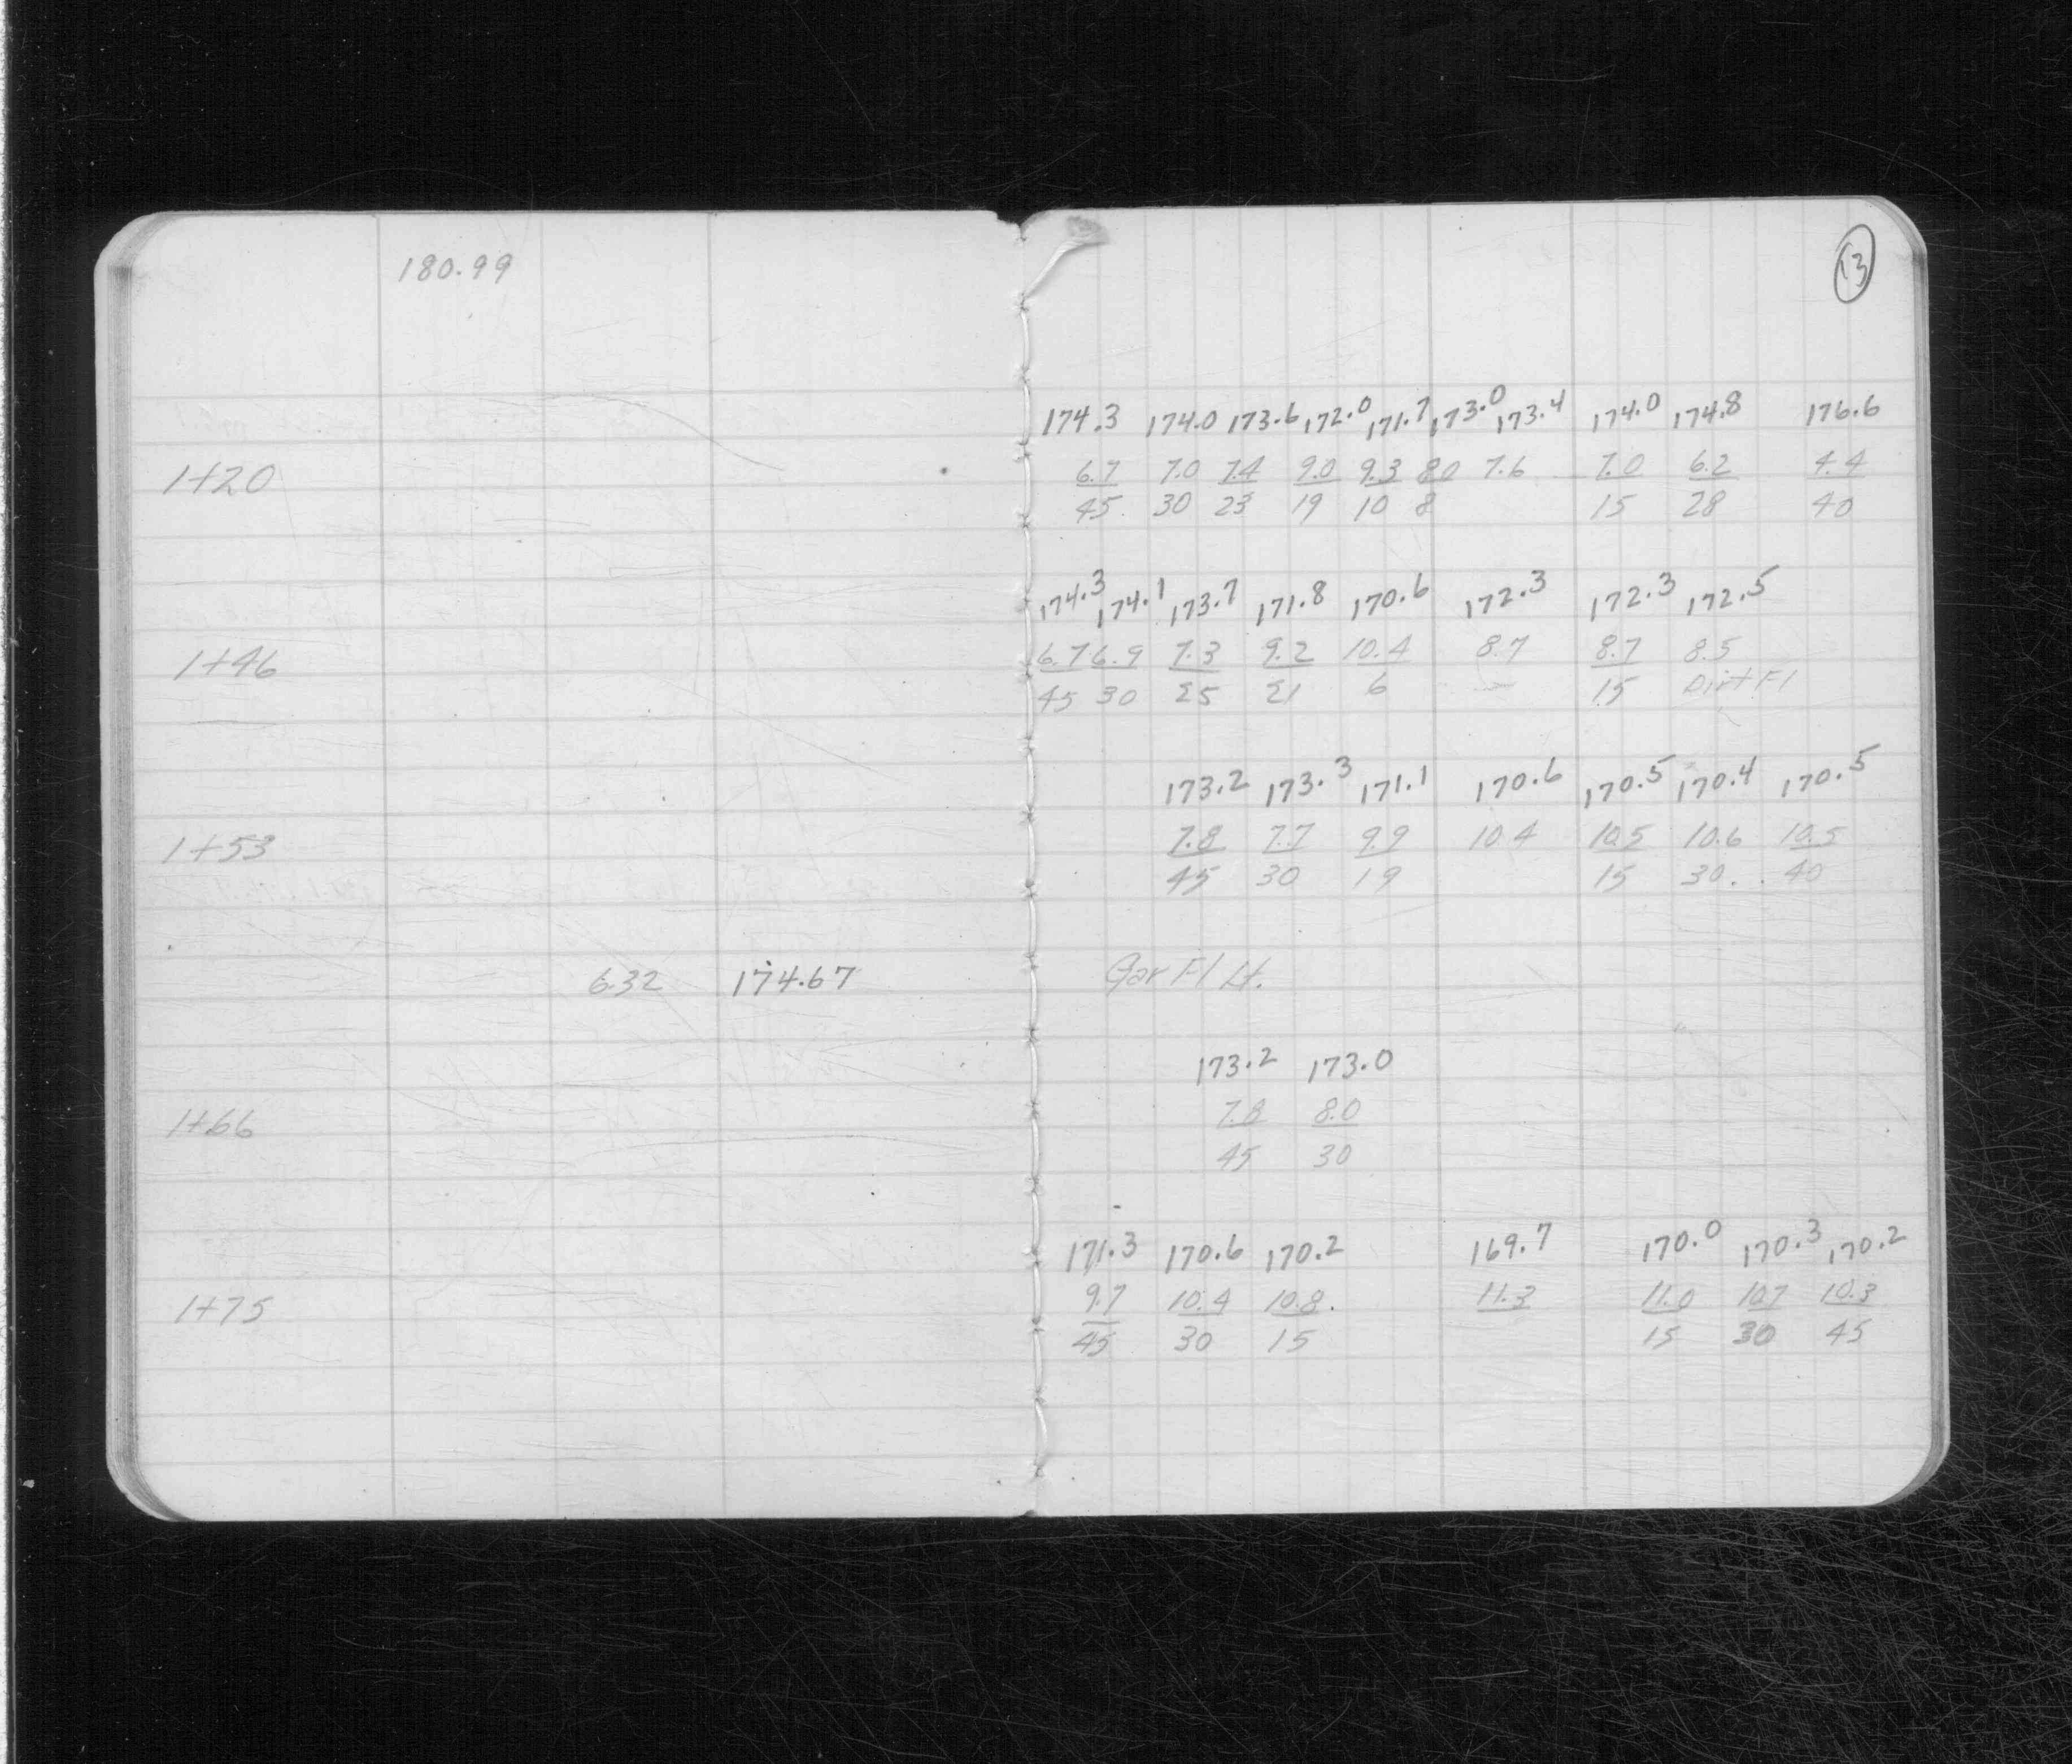 180.99
13
174.3 174.0 173.6 172.0 171.7 173.0 173.4 174.0 174.8 176.6
1+20 6.7 7.0 7.4 9.0 9.3 8.0 7.6 7.0 6.2 4.4
45 30 23 19 10 8 15 28 40
174.3 174.1 173.7 171.8 170.6 172.3 172.3 172.5
1+46 6.7 6.9 7.3 9.2 10.4 8.7 8.7 8.5
45 30 25 21 6 15 Dirt Fl
173.2 173.3 171.1 170.6 170.5 170.4 170.5
1+53 7.8 7.7 9.9 10.4 10.5 10.6 10.5
45 30 19 15 30. 40
6.32 174.67 Gar Fl Lt.
173.2 173.0
1+66 7.8 8.0
45 30
171.3 170.6 170.2 169.7 170.0 170.3 170.2
1+75 9.7 10.4 10.8. 11.3 11.0 10.7 10.3
45 30 15 15 30 45